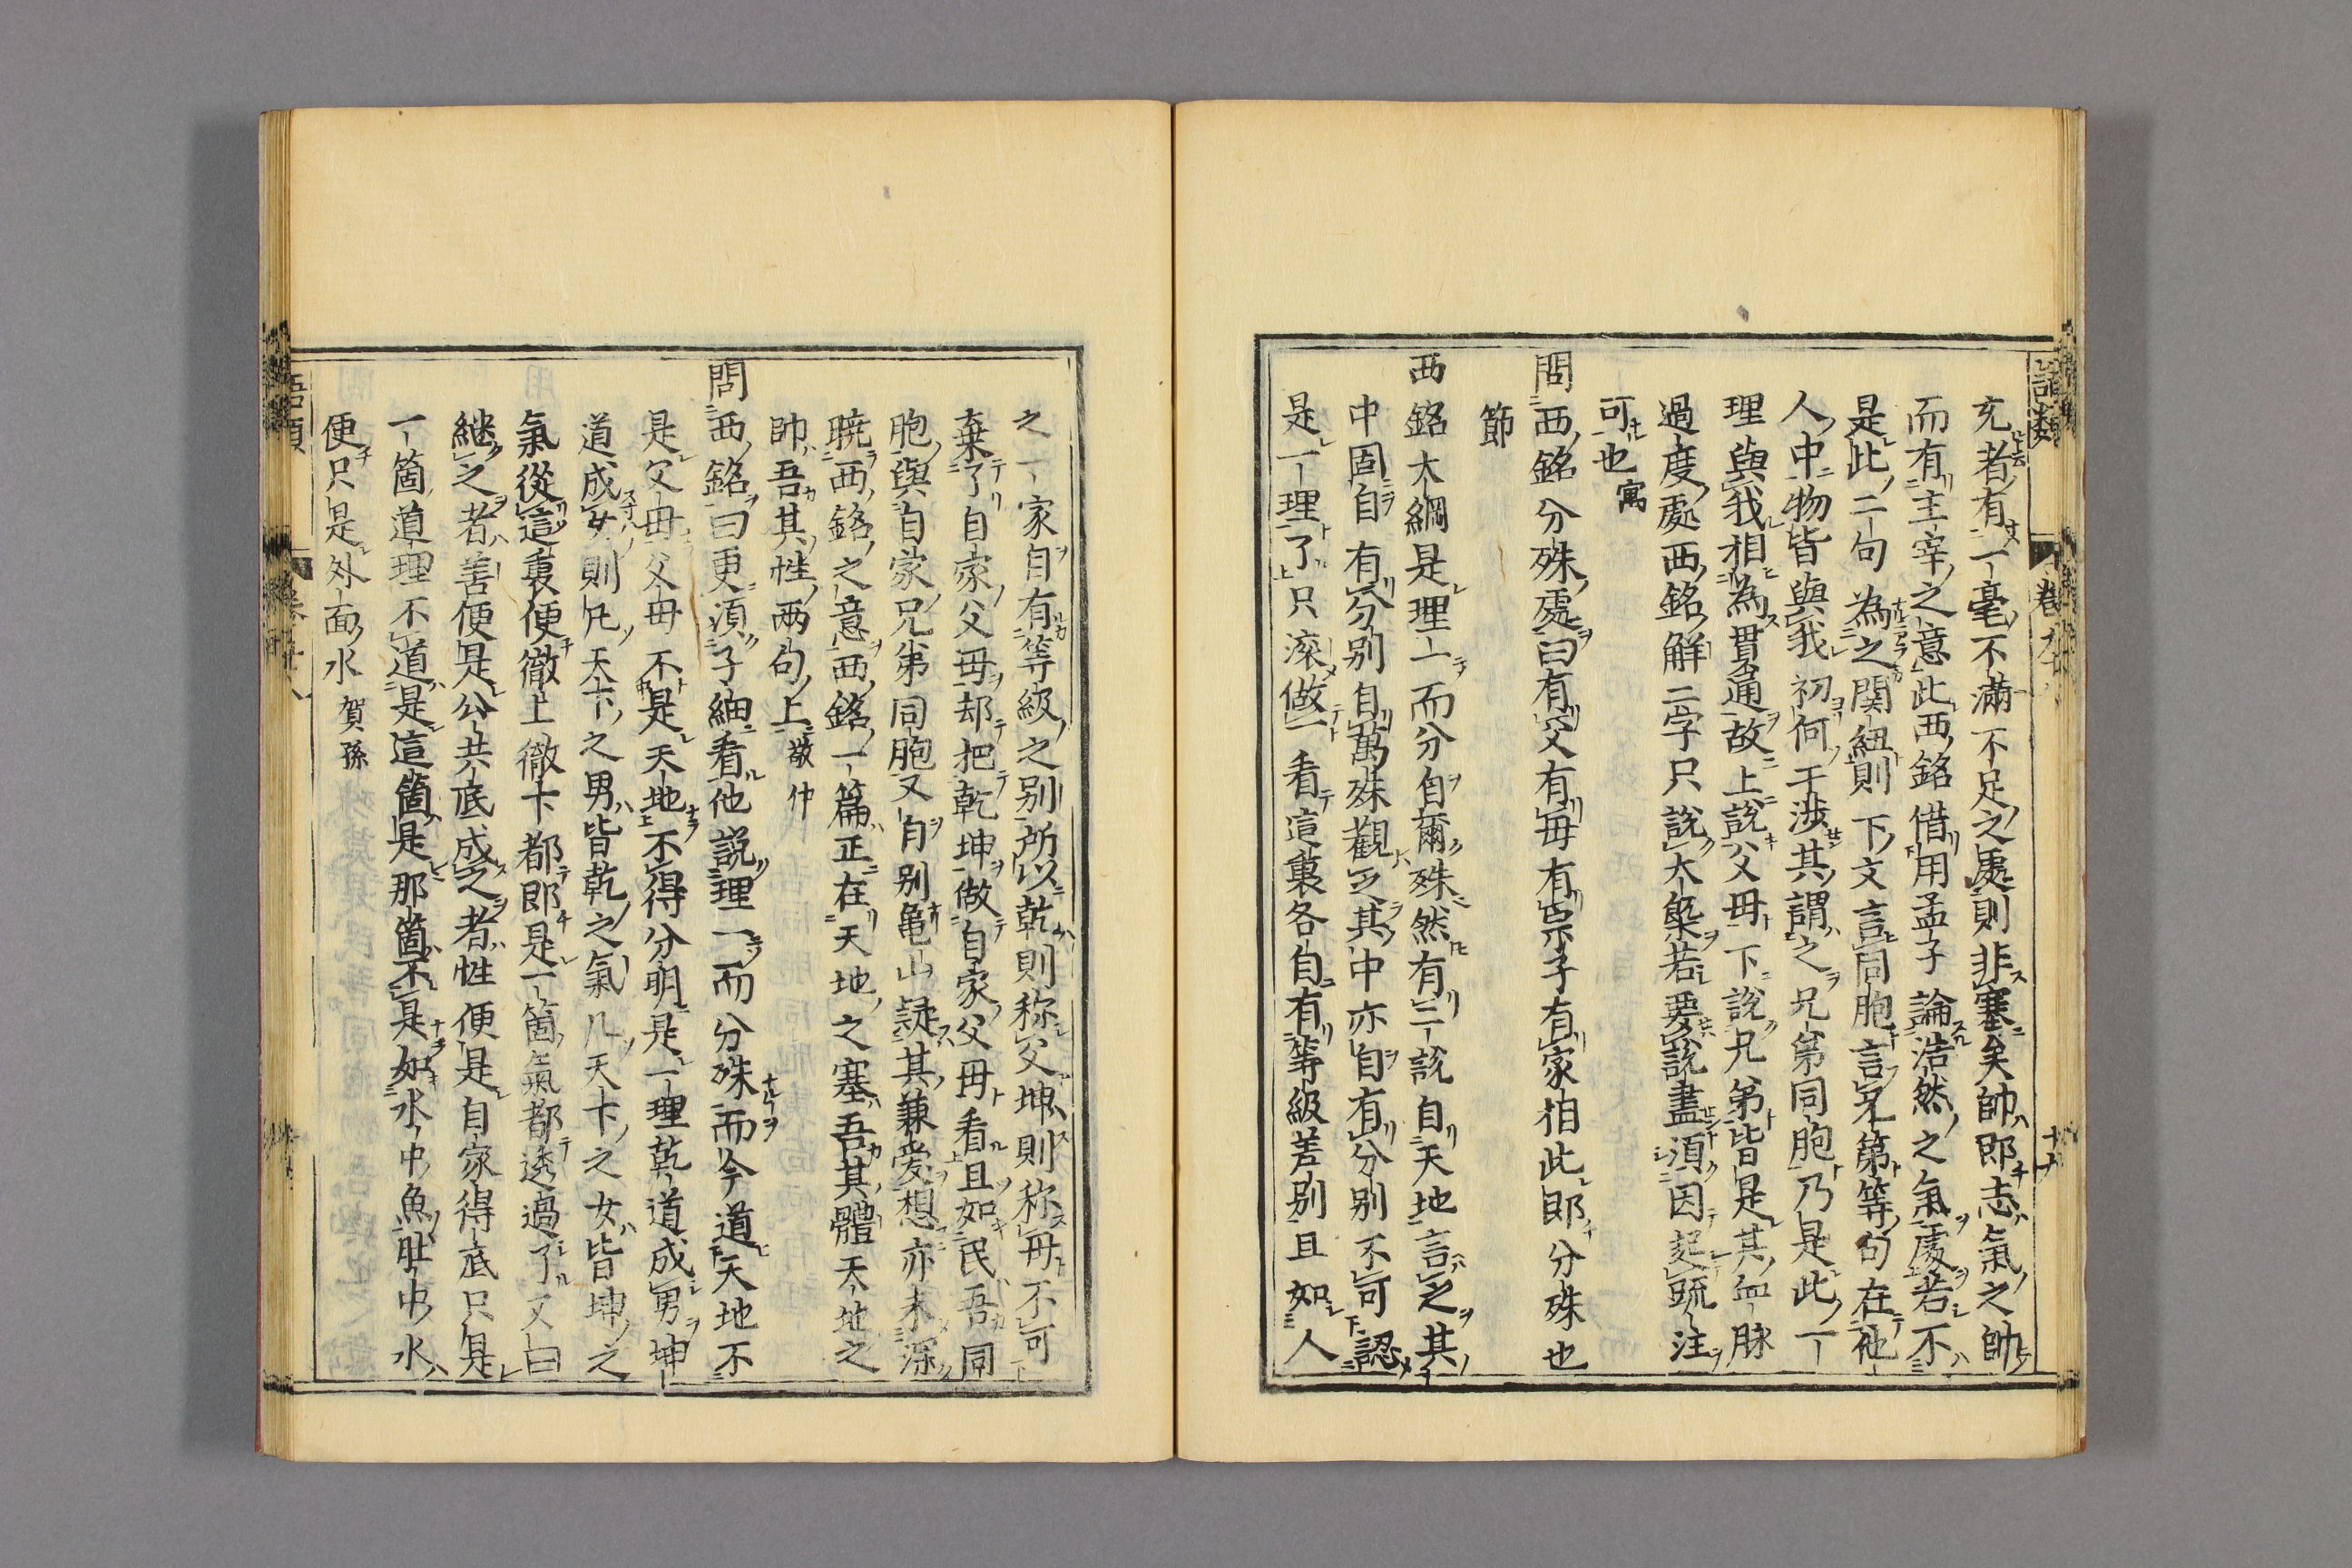 充者有一毫不滿不足之處則非塞矣帥即志氣之帥
而有主宰之意此西銘借用孟子論浩然之氣處若不
是此二句為之関紐則下文言同胞言兄第等句在他
人中物皆與我初何干渉其謂之兄第同胞乃是此一
理與我相為貫通故上說父母下說兄第皆是其血脉
過度處西銘解二字只說大槩若要說盡須因起䟽注
可也寓
問西銘分殊處曰有父有母有宗子有家相此即分殊也
節
西銘大綱是理一而分自爾殊然有二說自天地言之其
中固自有分别自萬殊觀之其中亦自有分别不可認
是一理了只滚做一看這裏各自有等級差别且如人
之一家自有等級之别所以乾則称父坤則称母不可
棄了自家父母却把乾坤做自家父母看且如民吾同
胞與自家兄弟同胞又自别亀山疑其兼愛想亦未深
曉西銘之意西銘一篇正在天地之塞吾其體天地之
帥吾其性兩句上敬仲
問西銘曰更須子細看他說理一而分殊而今道天地不
是父母父母不是天地不得分明是一理乾道成男坤
道成女則凡天下之男皆乾之氣凡天下之女皆坤之
氣從這裏便徹上徹下都即是一箇氣都透過了又曰
継之者善便是公共底成之者性便是自家得底只是
一箇道理不道是這箇是那箇不是如水中魚肚中水
便只是外面水賀孫